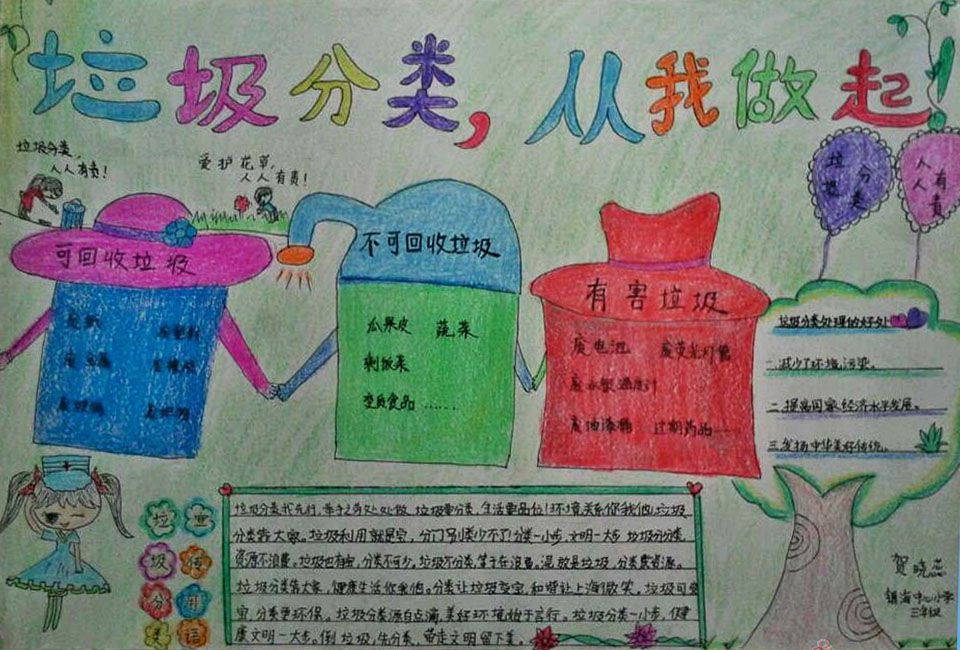 垃圾分类,从我做起
垃圾分类,
人人有责!
爱护花草,
人人有责!
垃圾
分类
人人
有责
可回收垃圾
废纸 废塑料
废金属
废玻璃
不可回收垃圾
瓜果皮 蔬菜
剩饭菜
变质食品……
有害垃圾
废电池 废荧光灯管
废水银温度计
废油漆桶 过期药品……
垃圾分类处理的好处
一.减少了环境污染。
二.提高国家经济水平发展。
三.发扬中华美好传统。
垃圾分类
宣传用语
垃圾分类我先行,举手之劳处处做,垃圾要分类,生活要品位!环境关系你我他,垃圾
分类靠大家。垃圾利用就是宝,分门别类少不了!分类一小步,文明一大步,垃圾分分类
资源不浪费。垃圾也有家,分类不可少。垃圾不分类,等于在浪费,混放是垃圾,分类是资源。
垃圾分类靠大家,健康生活你我他。分类让垃圾变宝,和谐让上海微笑。垃圾可变
宝,分类更环保。垃圾分类源自点滴,美好环境始于言行。垃圾分类一小步,健
康文明一大步。倒垃圾,先分类,带走文明留下美。
贺晓蕊
镇海中心小学
三年级